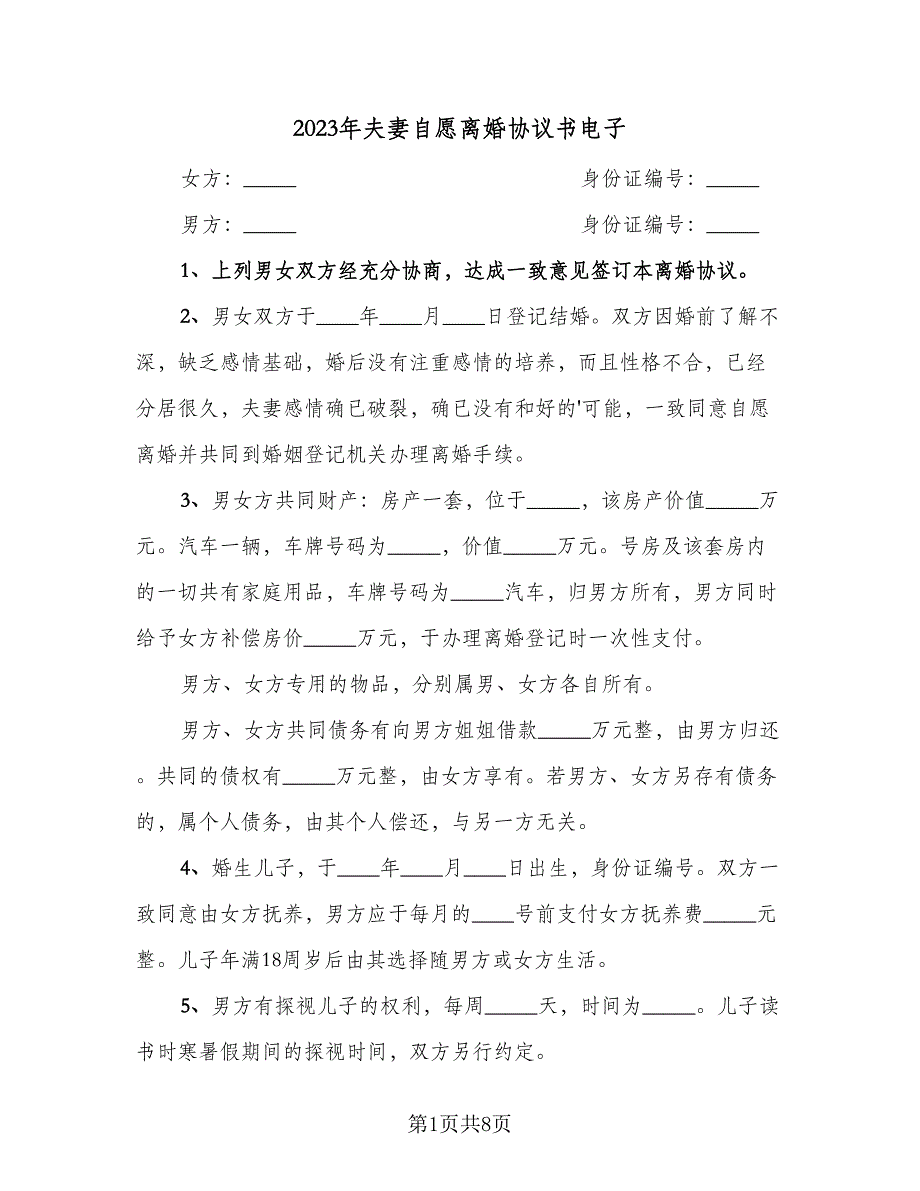 2023年夫妻自愿离婚协议书电子
女方：_____ 身份证编号：_____
男方：_____ 身份证编号：_____
1、上列男女双方经充分协商，达成一致意见签订本离婚协议。
2、男女双方于____年____月____日登记结婚。双方因婚前了解不
深，缺乏感情基础，婚后没有注重感情的培养，而且性格不合，已经
分居很久，夫妻感情确已破裂，确已没有和好的'可能，一致同意自愿
离婚并共同到婚姻登记机关办理离婚手续。
3、男女方共同财产：房产一套，位于_____，该房产价值_____万
元。汽车一辆，车牌号码为_____，价值_____万元。号房及该套房内
的一切共有家庭用品，车牌号码为_____汽车，归男方所有，男方同时
给予女方补偿房价_____万元，于办理离婚登记时一次性支付。
男方、女方专用的物品，分别属男、女方各自所有。
男方、女方共同债务有向男方姐姐借款_____万元整，由男方归还
。共同的债权有_____万元整，由女方享有。若男方、女方另存有债务
的，属个人债务，由其个人偿还，与另一方无关。
4、婚生儿子，于____年____月____日出生，身份证编号。双方一
致同意由女方抚养，男方应于每月的____号前支付女方抚养费_____元
整。儿子年满18周岁后由其选择随男方或女方生活。
5、男方有探视儿子的权利，每周_____天，时间为_____。儿子读
书时寒暑假期间的探视时间，双方另行约定。
第1页共8页